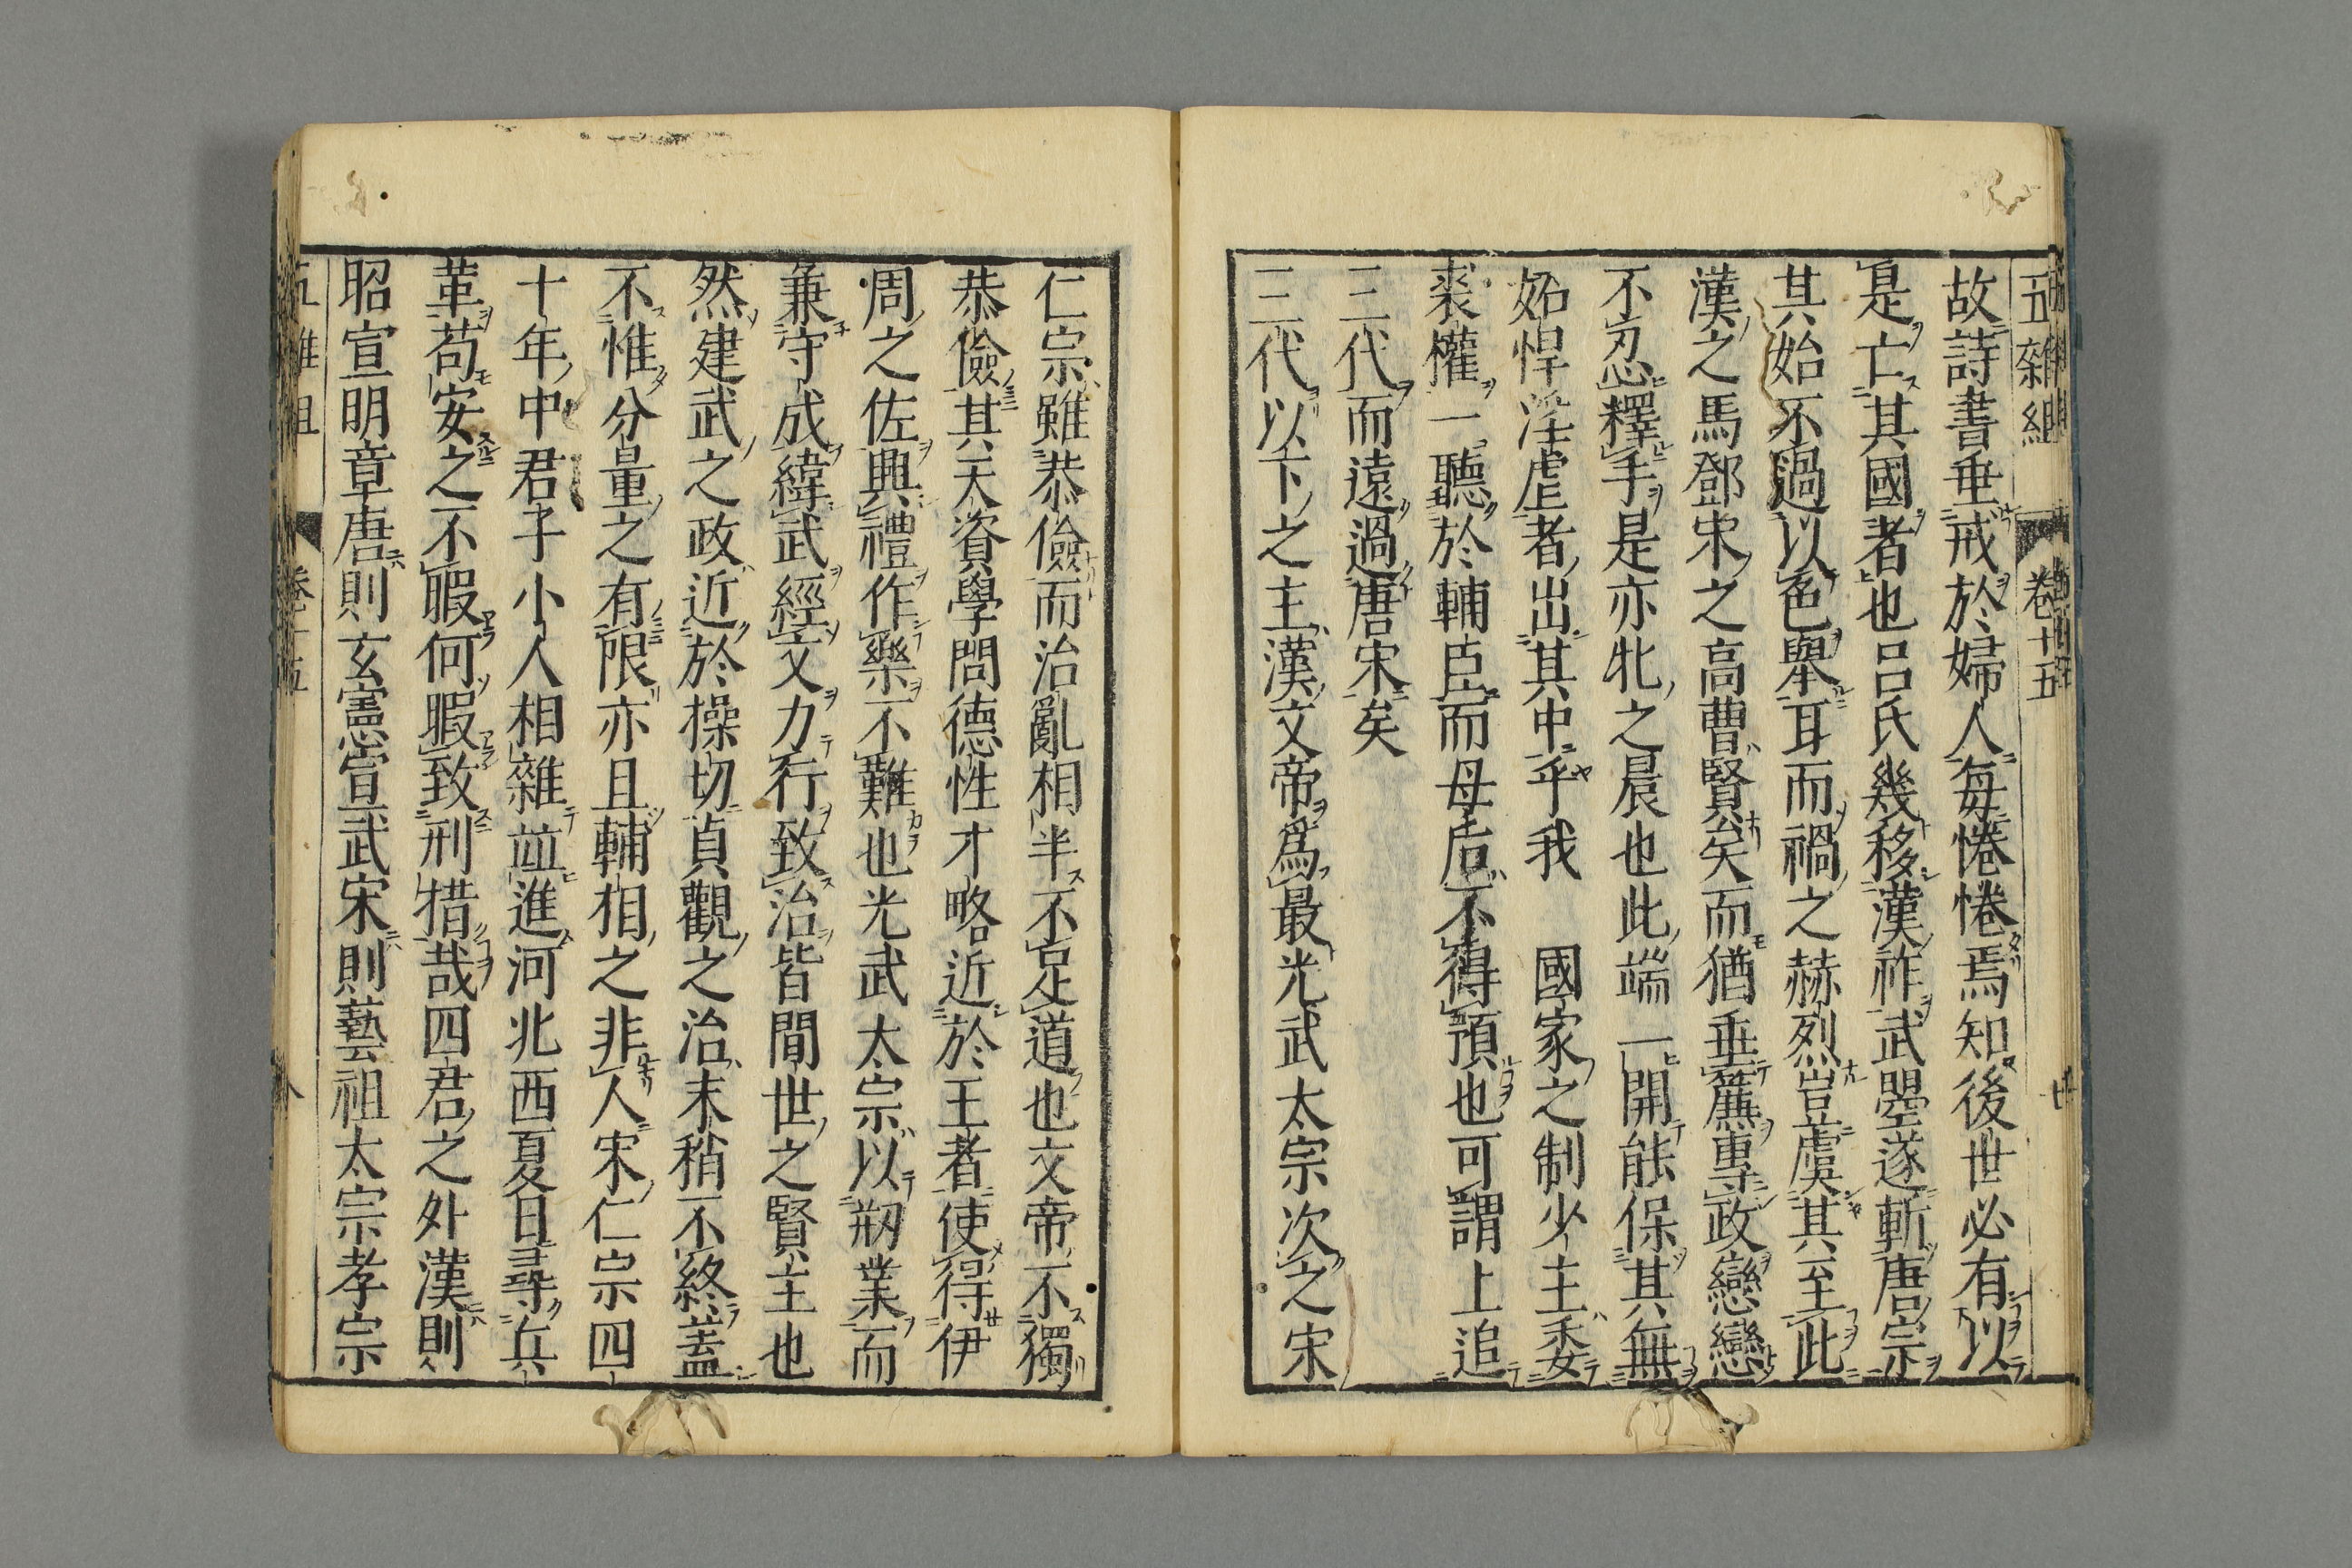 五雜組 卷十五
故詩書垂戒於婦人每惓惓焉知後世必有以
是亡其國者也呂氏幾移漢祚武曌遂斬唐宗
其始不過以色舉耳而禍之赫烈豈虞其至此
漢之馬鄧宋之高曹賢矣而猶垂簾專政戀戀
不忍釋手是亦牝之晨也此端一開能保其無
妬悍淫虐者出其中乎我 國家之制少主委
裘權一聽於輔臣而母后不得預也可謂上追
三代而遠過唐宋矣
三代以下之主漢文帝爲最光武太宗次之宋
仁宗雖恭儉而治亂相半不足道也文帝不獨
恭儉其天資學問德性才略近於王者使得伊
周之佐興禮作樂不難也光武太宗以剏業而
兼守成緯武經文力行致治皆間世之賢主也
然建武之政近於操切貞觀之治末稍不終蓋
不惟分量之有限亦且輔相之非人宋仁宗四
十年中君子小人相雜竝進河北西夏日尋兵
革苟安之不暇何暇致刑措哉四君之外漢則
昭宣明章唐則玄憲宣武宋則藝祖太宗孝宗
五雜組 卷十五